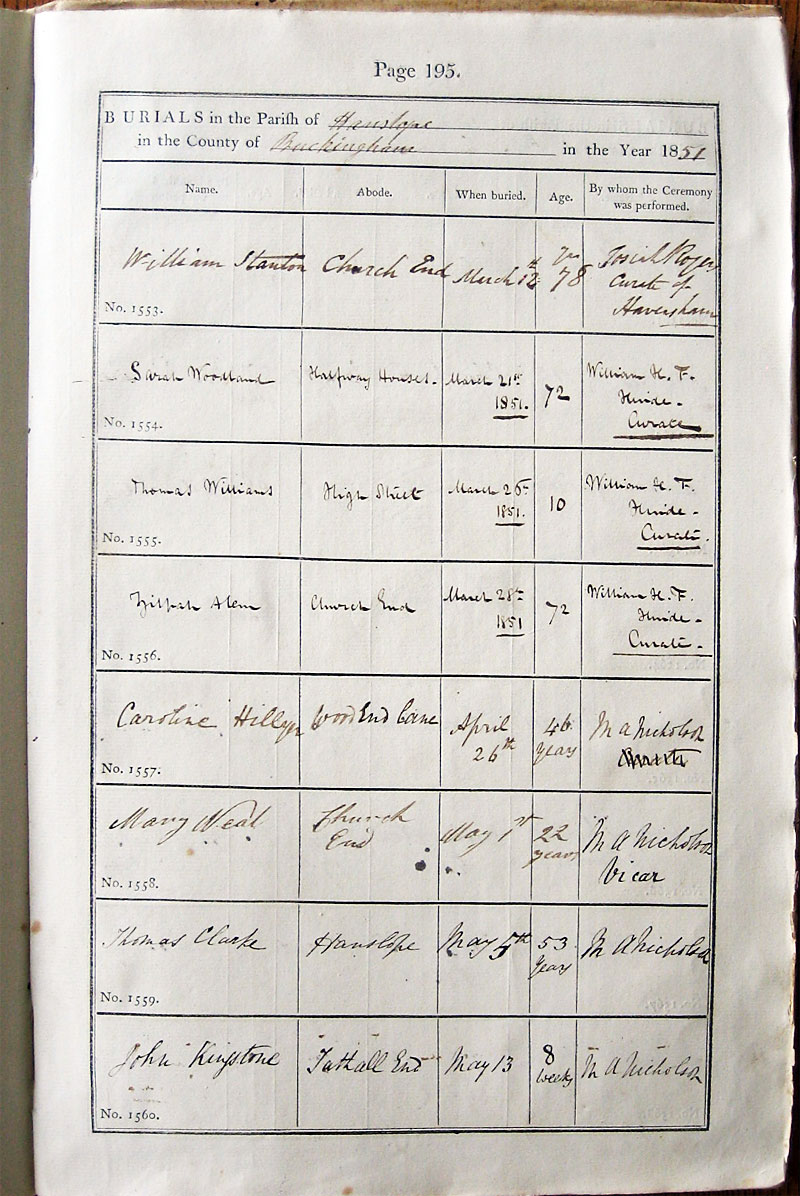 Page 195.
BURIALS in the Parish of Hanslope
in the County of Buckingham in the Year 1851
Name. Abode. When buried. Age. By whom the Ceremony was performed.
William Stanton Church End March 12th Yrs 78 Josiah Rogers
Curate of
Haversham
No. 1553.
Sarah Woodland Halfway Houses. March 21st 1851. 72 William H. F.
Hinde.
Curate
No. 1554.
Thomas Williams High Street March 26th 1851. 10 William H. F.
Hinde.
Curate.
No. 1555.
Zilpah Church End March 28th 1851 72 William H. F.
Hinde.
Curate.
No. 1556.
Caroline Hillyer Wood End Lane April 26th 46 years M A Nicholson
No. 1557.
Mary Neal Church End May 1st 22 years M A Nicholson
Vicar
No. 1558.
Thomas Clarke Hanslope May 5th 53 Years M A Nicholson
No. 1559.
John Kingstone Tathall End May 13 8 weeks M A Nicholson
No. 1560.